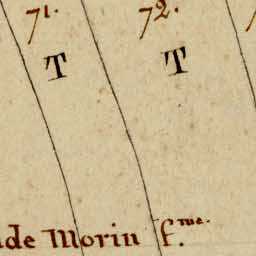 71. 72.
T T
de Morin f.me.